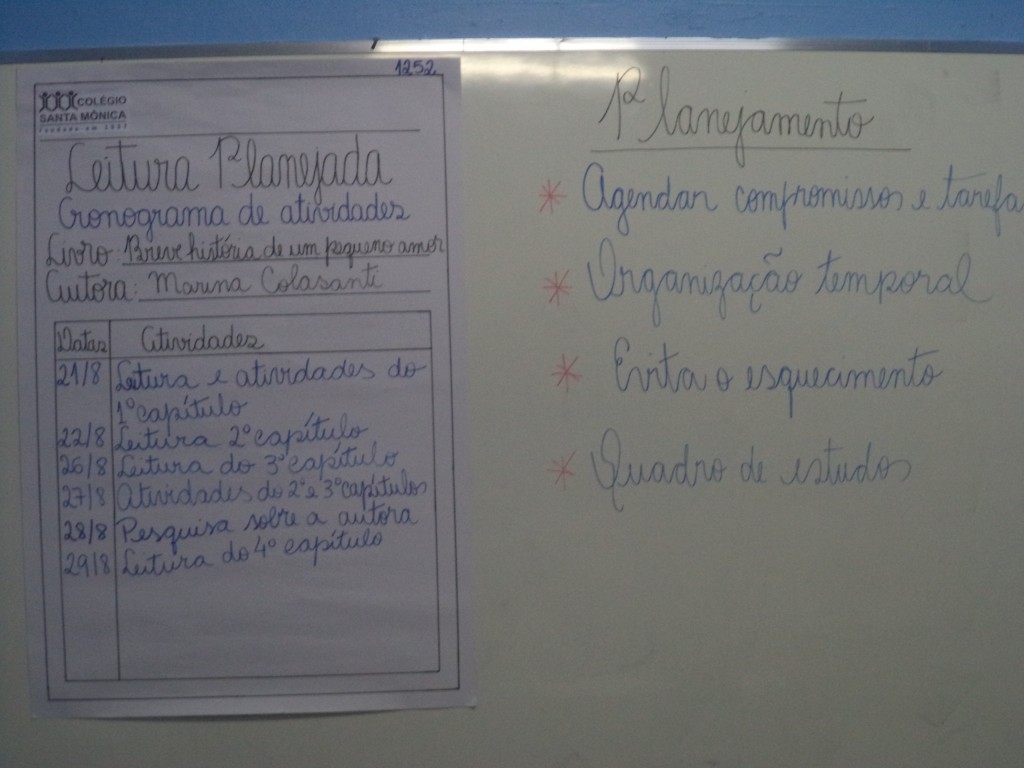 1252
COLÉGIO
SANTA MÔNICA
Leitura Planejada
Cronograma de atividades
Livro: Breve história de um pequeno amor
Autora: Marina Colasanti
Datas Atividades
21/8 Leitura e atividades do
1º capítulo
22/8 Leitura 2º capítulo
26/8 Leitura do 3º capítulo
27/8 Atividades do 2º e 3º capítulos
28/8 Pesquisa sobre a autora
29/8 Leitura do 4º capítulo
Planejamento
* Agendar compromissos e tarefa
* Organização temporal
* Evita o esquecimento
* Quadro de estudos